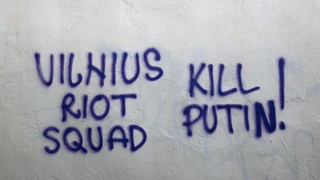 VILNIUS
RIOT
SQUAD
KILL
PUTIN!